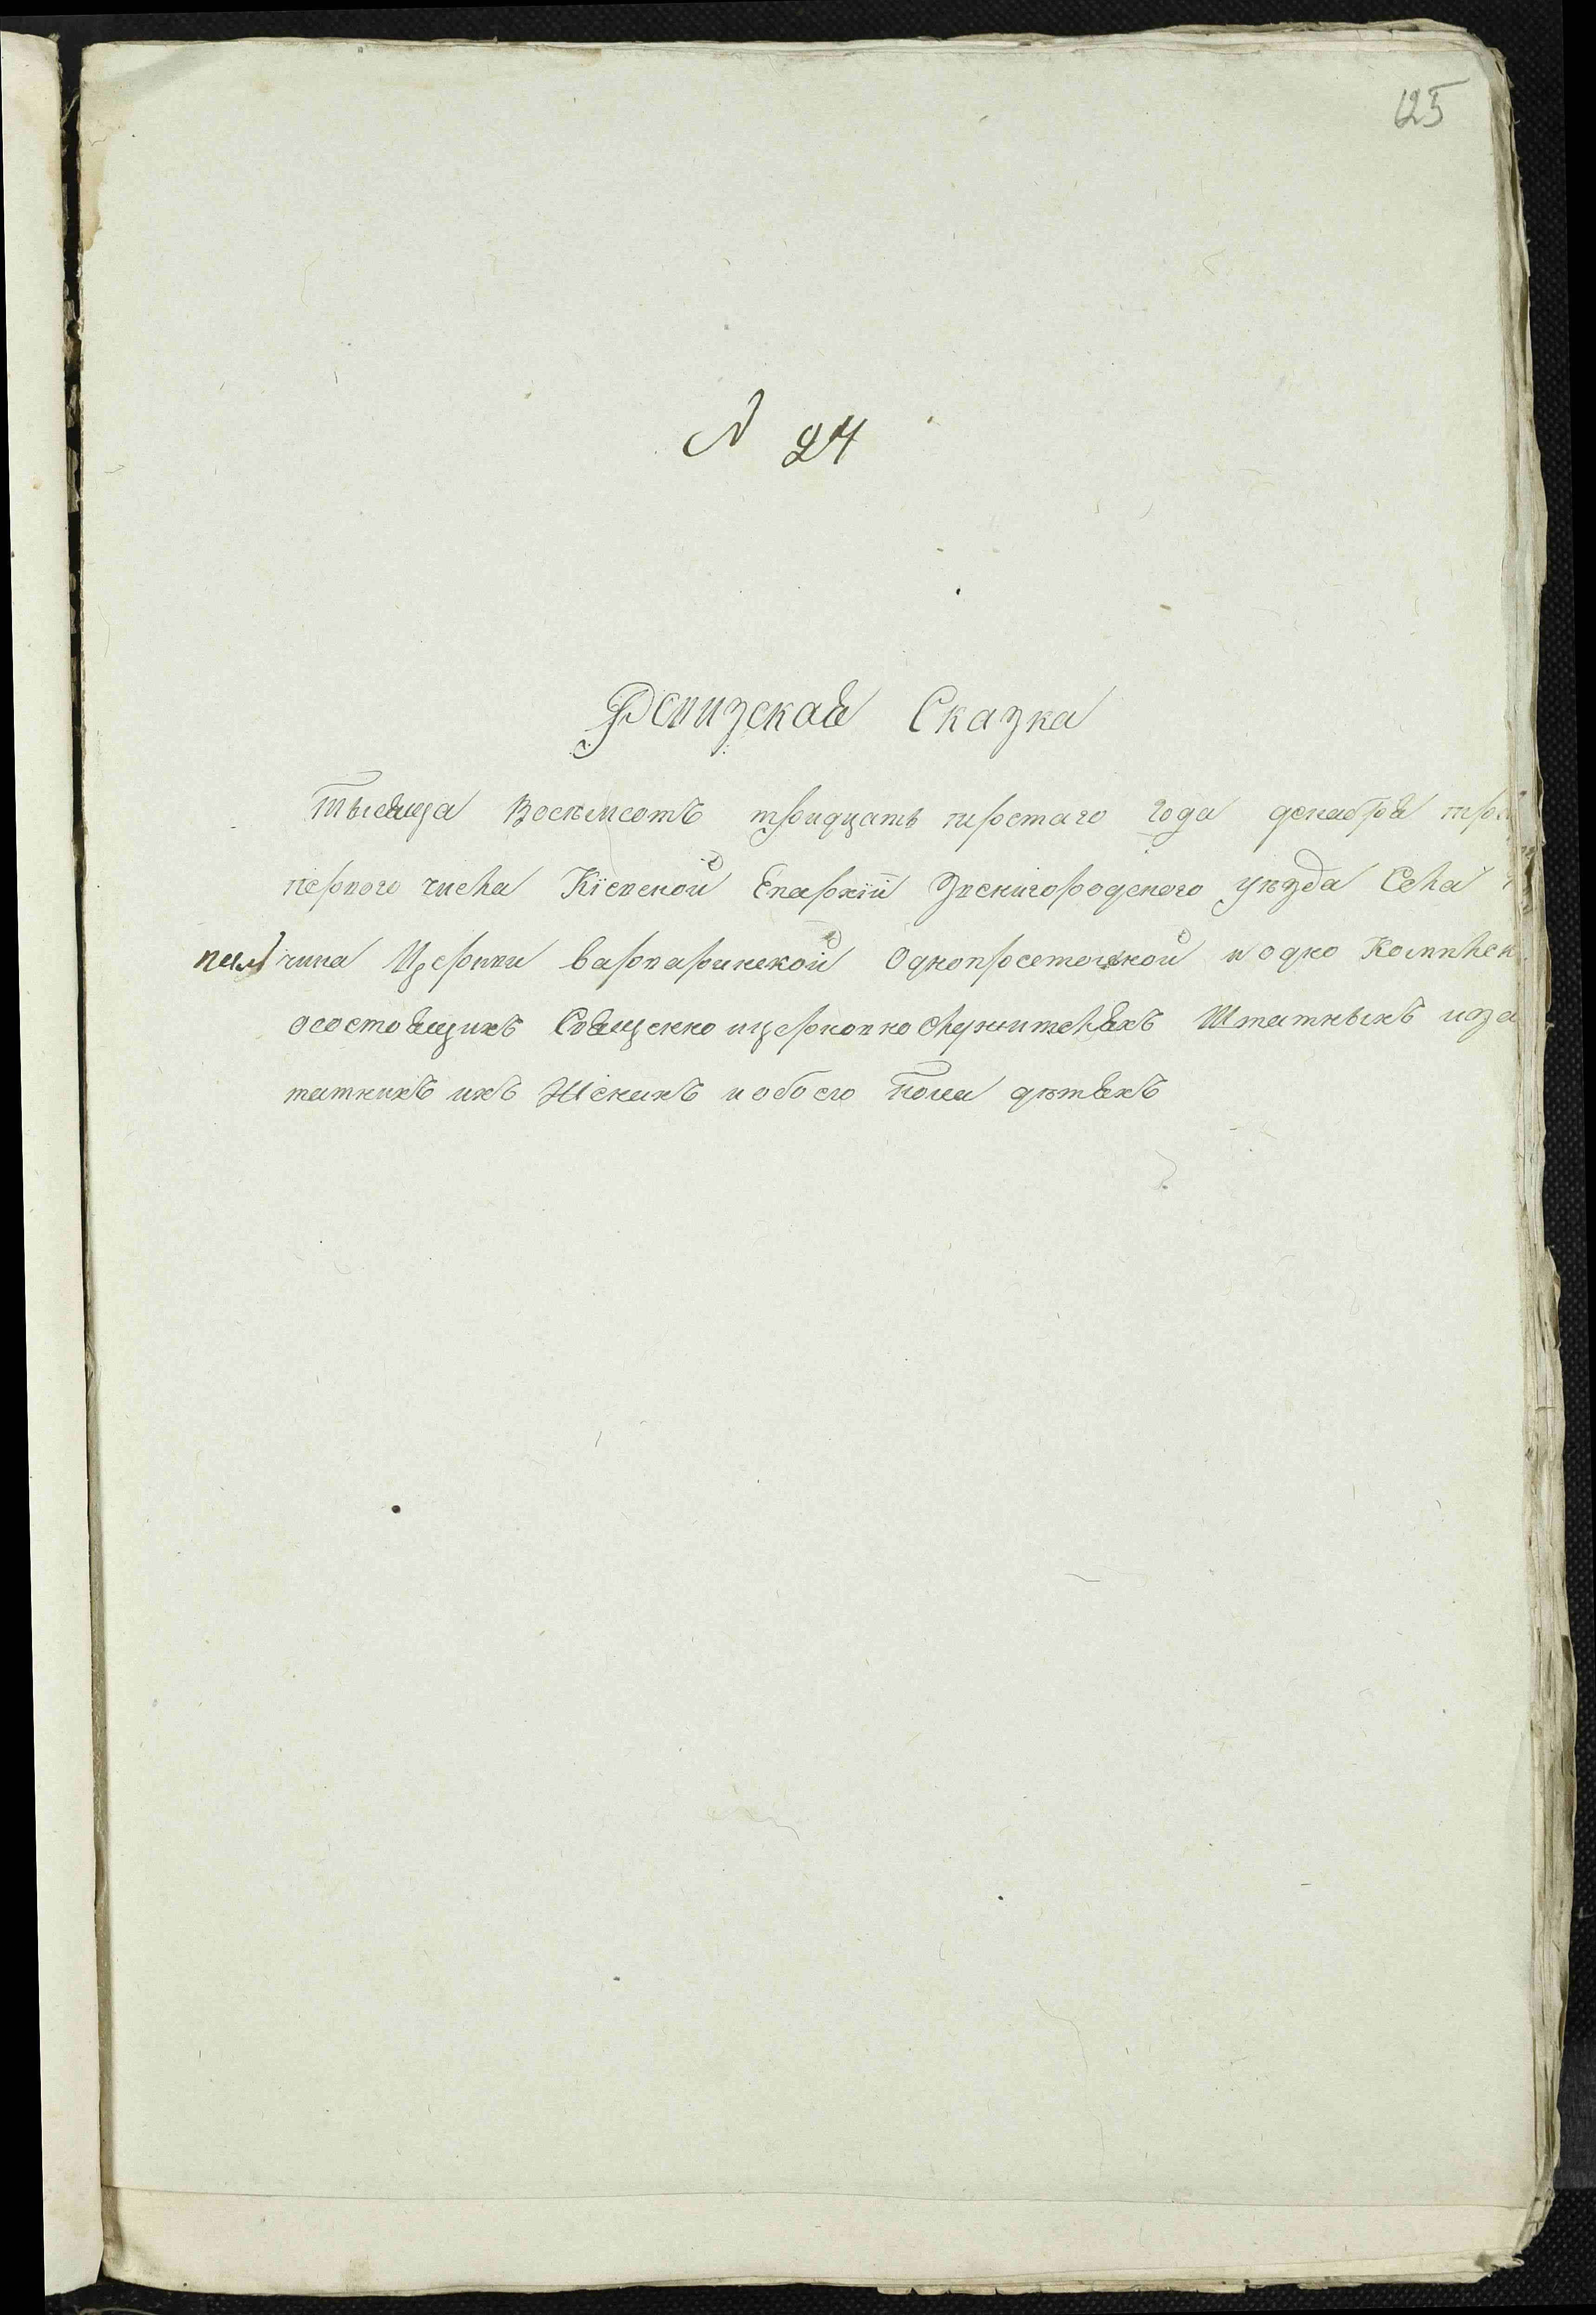 125
N 24
Ревизская Сказка
Тысяща Восемсотъ тридцать первого года декабря
первого числа Кіевской Епархіи Звенигородского уѣзда Села
чина Церкви Варваринской Однопрестольной и одно
осостоящихъ Священно ицерковно служителяхъ Штатныхъ иза
татнихъ ихъ Женахъ и обоего Пола дѣтяхъ